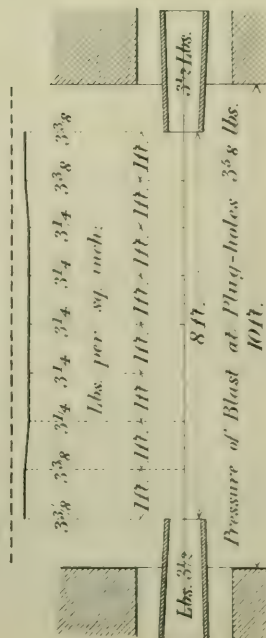 3 3/8 3 3/8 3 1/4 3 1/4 3 1/4 3 1/4 3 1/4 3 3/8 3 3/8
Lbs. per sq. inch.
1ft. 1ft. 1ft. 1ft. 1ft. 1ft. 1ft. 1ft.
Lbs. 3 1/2 3 1/2 Lbs.
8 ft.
Pressure of Blast at Plug-holes 3 5/8 lbs.
10 ft.